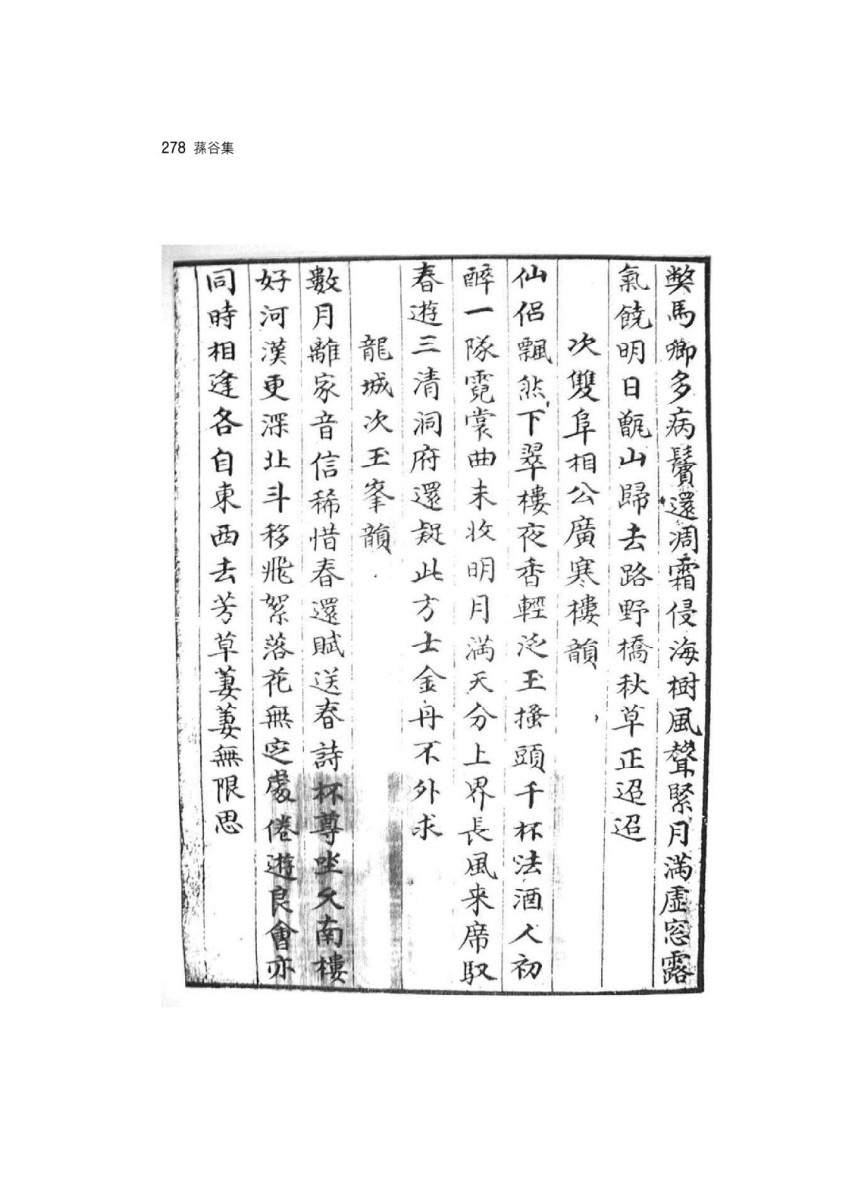 278 蓀谷集
獘馬卿多病鬢還凋霜侵海樹風聲緊月滿虛窓露
氣饒明日甑山歸去路野橋秋草正迢迢
次雙阜相公廣寒樓韻
仙侶飄然下翠樓夜香輕泛玉搔頭千杯法酒人初
醉一隊霓裳曲未收明月滿天分上界長風來席馭
春遊三清洞府還疑此方士金丹不外求
龍城次玉峯韻
數月離家音信稀惜春還賦送春詩杯尊坐久南樓
好河漢更深北斗移飛絮落花無定處倦遊良會亦
同時相逢各自東西去芳草萋萋無限思